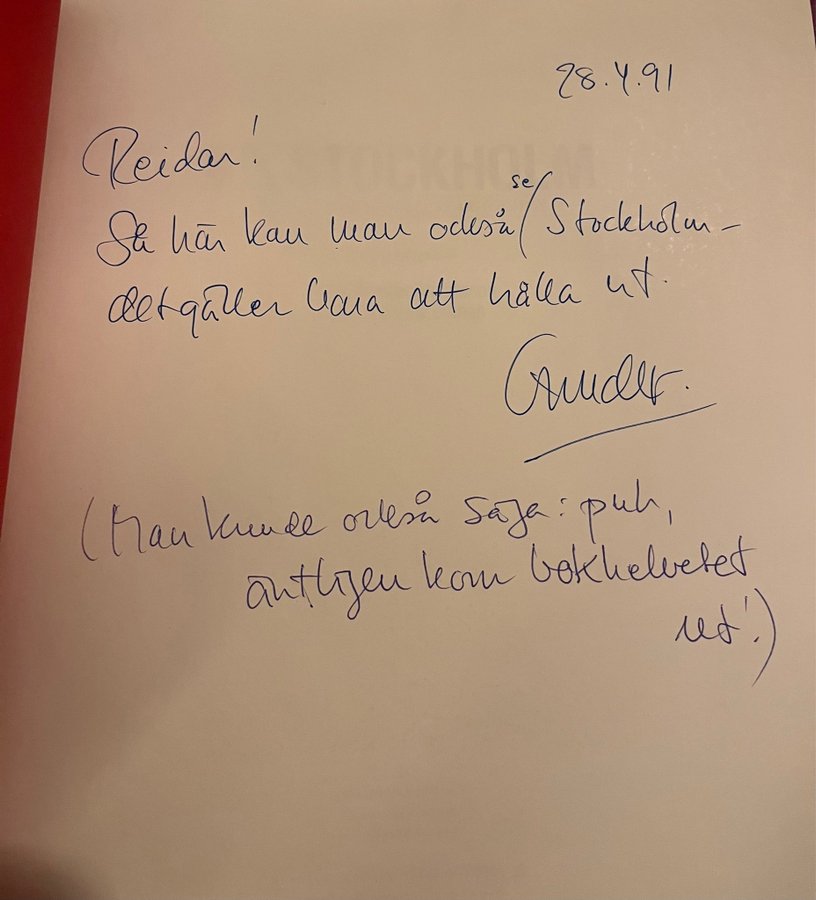 28.4.91
Reidar!
Så här kan man också se Stockholm –
det gäller bara att hålla ut.
(Man kunde också säga: puh,
äntligen kom bokhelvetet
ut!)